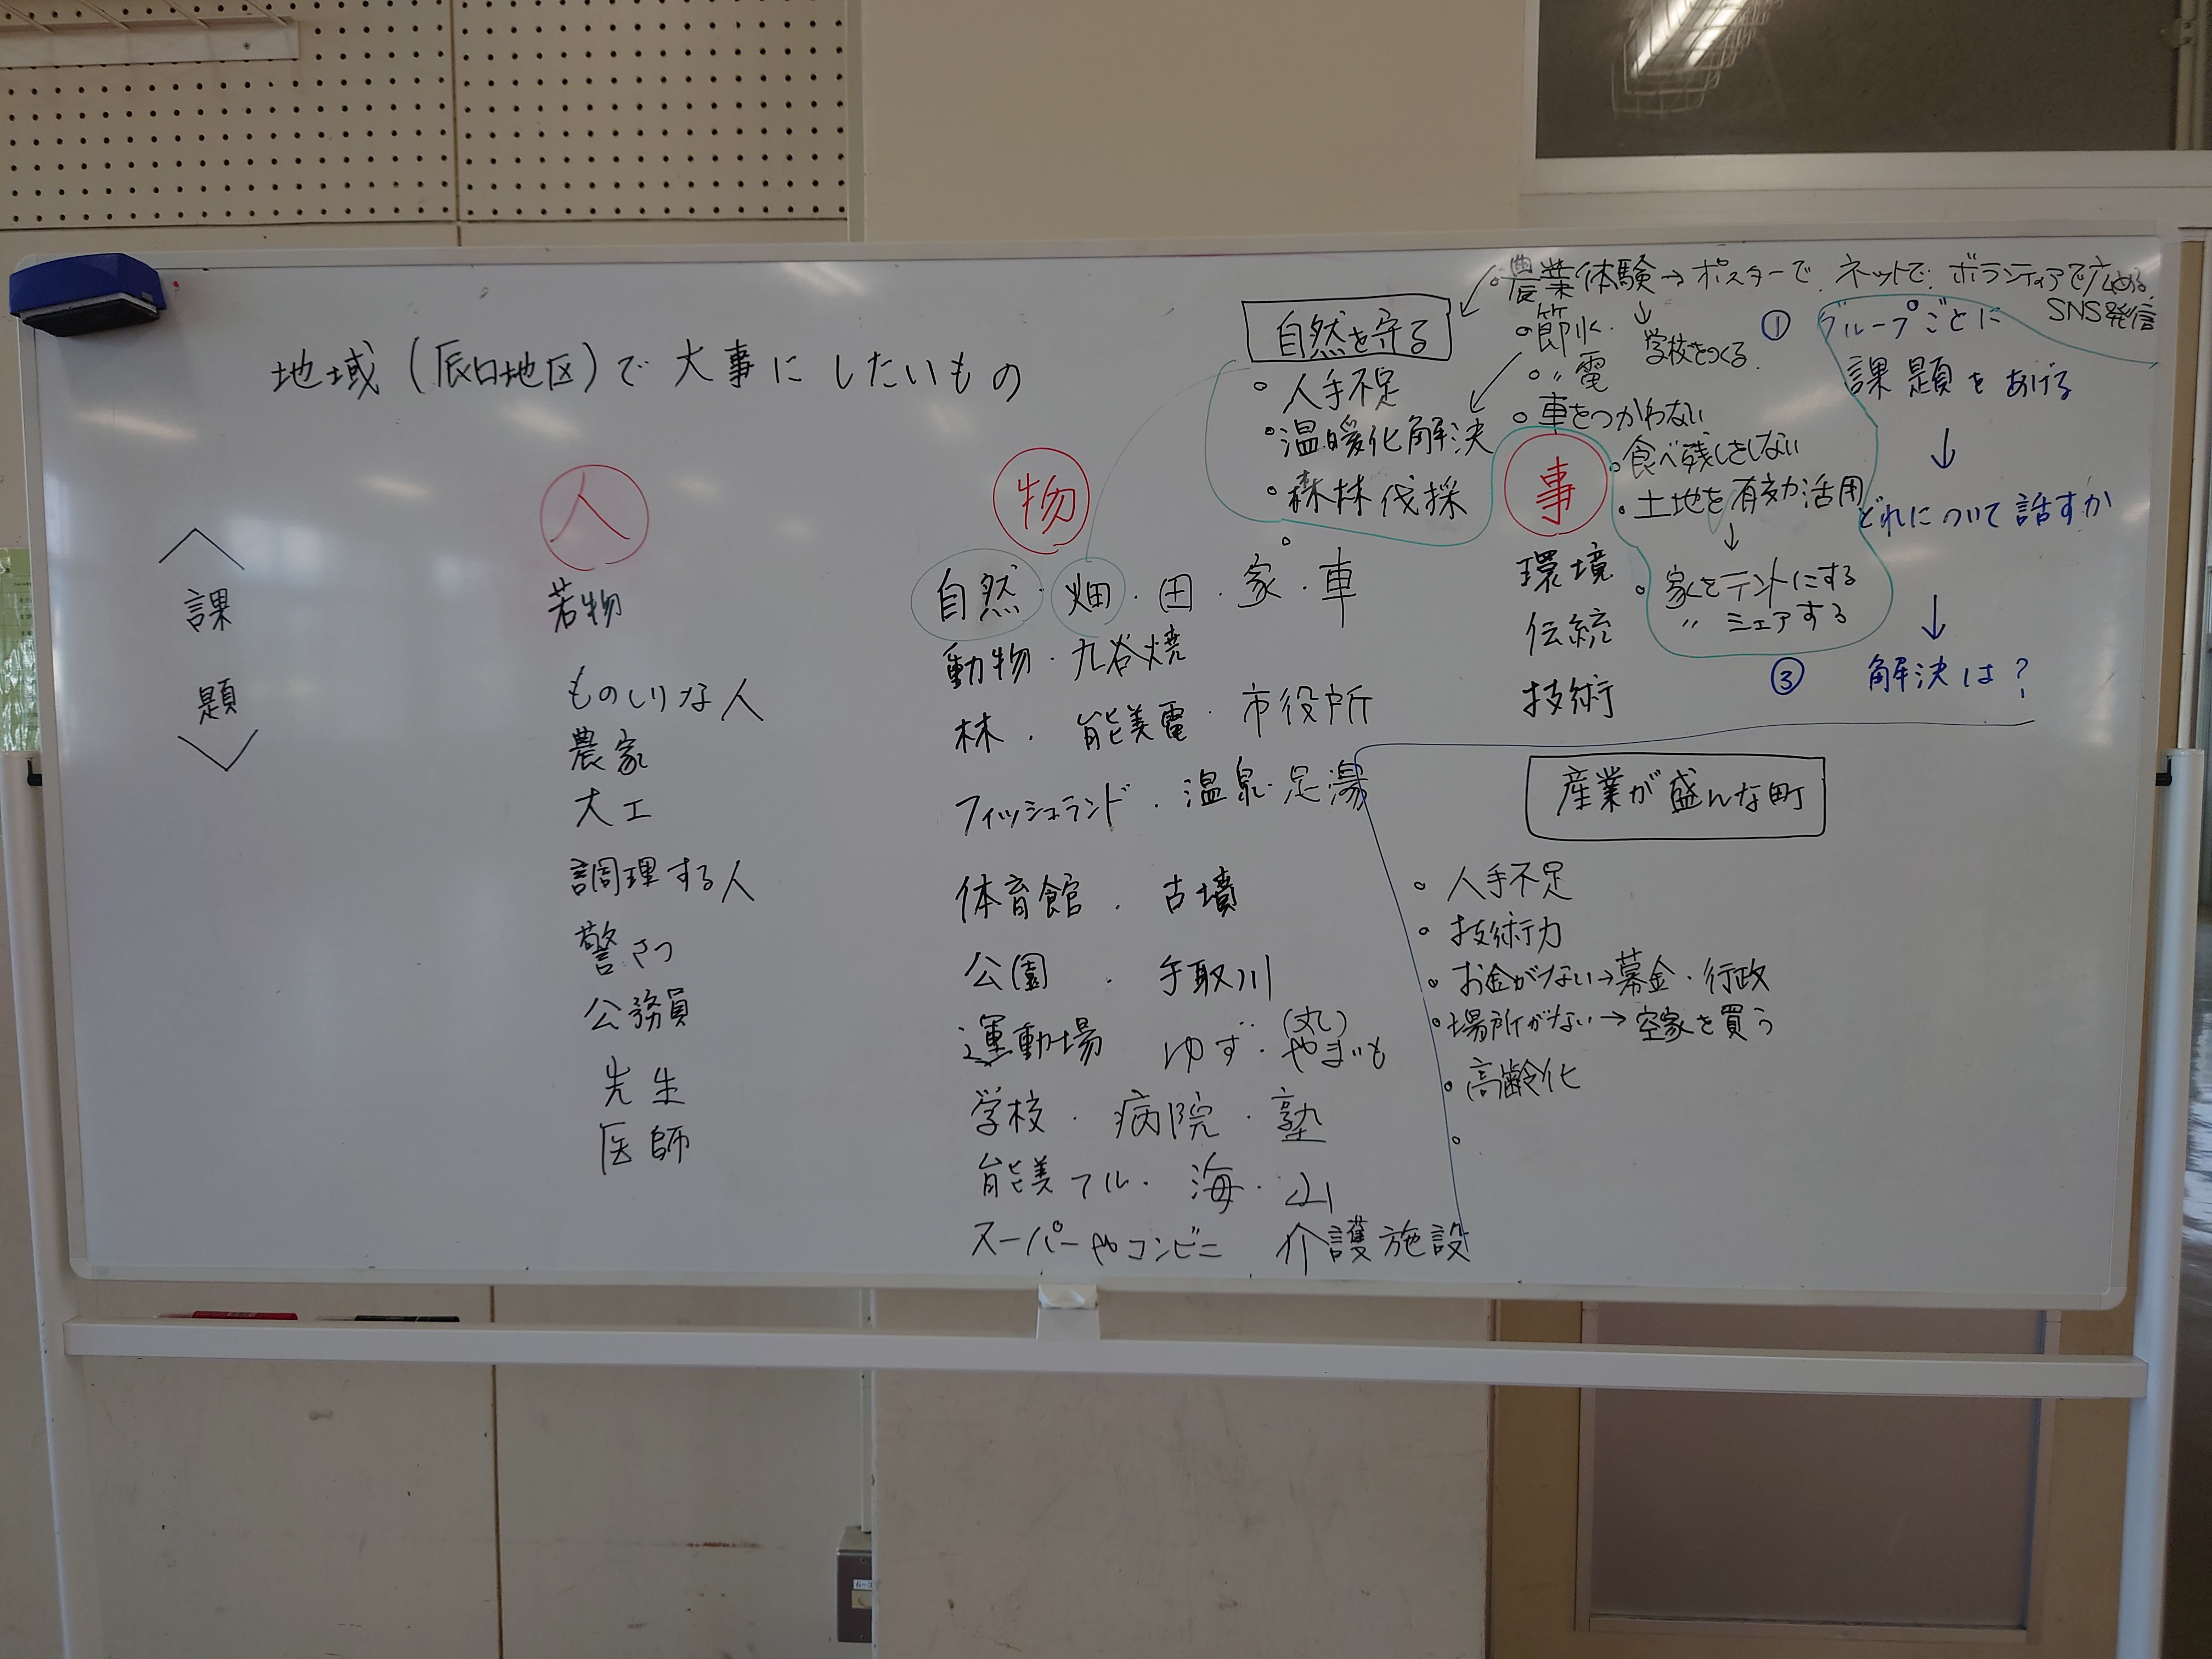 地域(辰口地区)で大事にしたいもの
課
題
人
若物
ものしりな人
農家
大工
調理する人
警さつ
公務員
先生
医師
物
自然・畑・田・家・車
動物・九谷焼
林・能美電・市役所
フィッシュランド・温泉・足湯
体育館・古墳
公園・手取川
運動場 ゆず・やまいも
(丸)
学校・病院・塾
能美フル・海・山
スーパーやコンビニ 介護施設
自然を守る
人手不足
温暖化解決
森林伐採
農業体験→ポスターで、ネットで、ボランティアで広める
SNS発信
学校をつくる
節水
〃電
車をつかわない
食べ残しをしない
土地を有効活用
家をテントにする
〃シェアする
事
環境
伝統
技術
① グループごとに
課題をあげる
どれについて話すか
③ 解決は?
産業が盛んな町
人手不足
技術力
お金がない→募金・行政
場所がない→空家を買う
高齢化